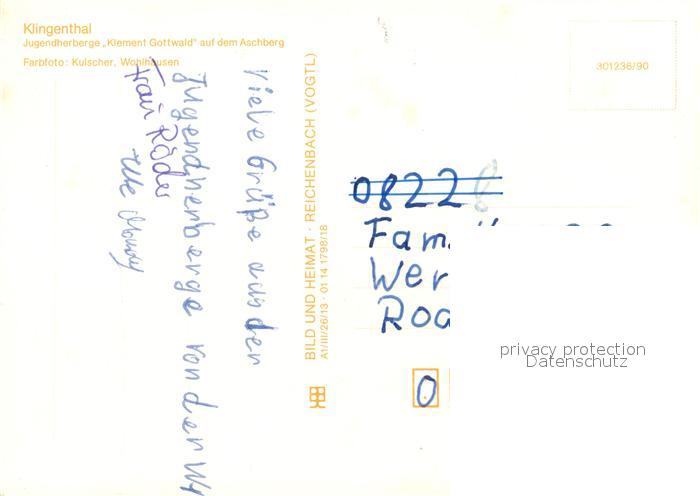 Klingenthal
Jugendherberge „Klement Gottwald" auf dem Aschberg
Farbfoto: Kulscher, Wohlhausen
Viele Grüße aus der
Jugendherberge von der
Frau Röder
BILD UND HEIMAT · REICHENBACH (VOGTL)
A1/III/26/13 · 01 14 1798/18
301236/90
0822
Fam.
Wer
Roc
0
privacy protection
Datenschutz